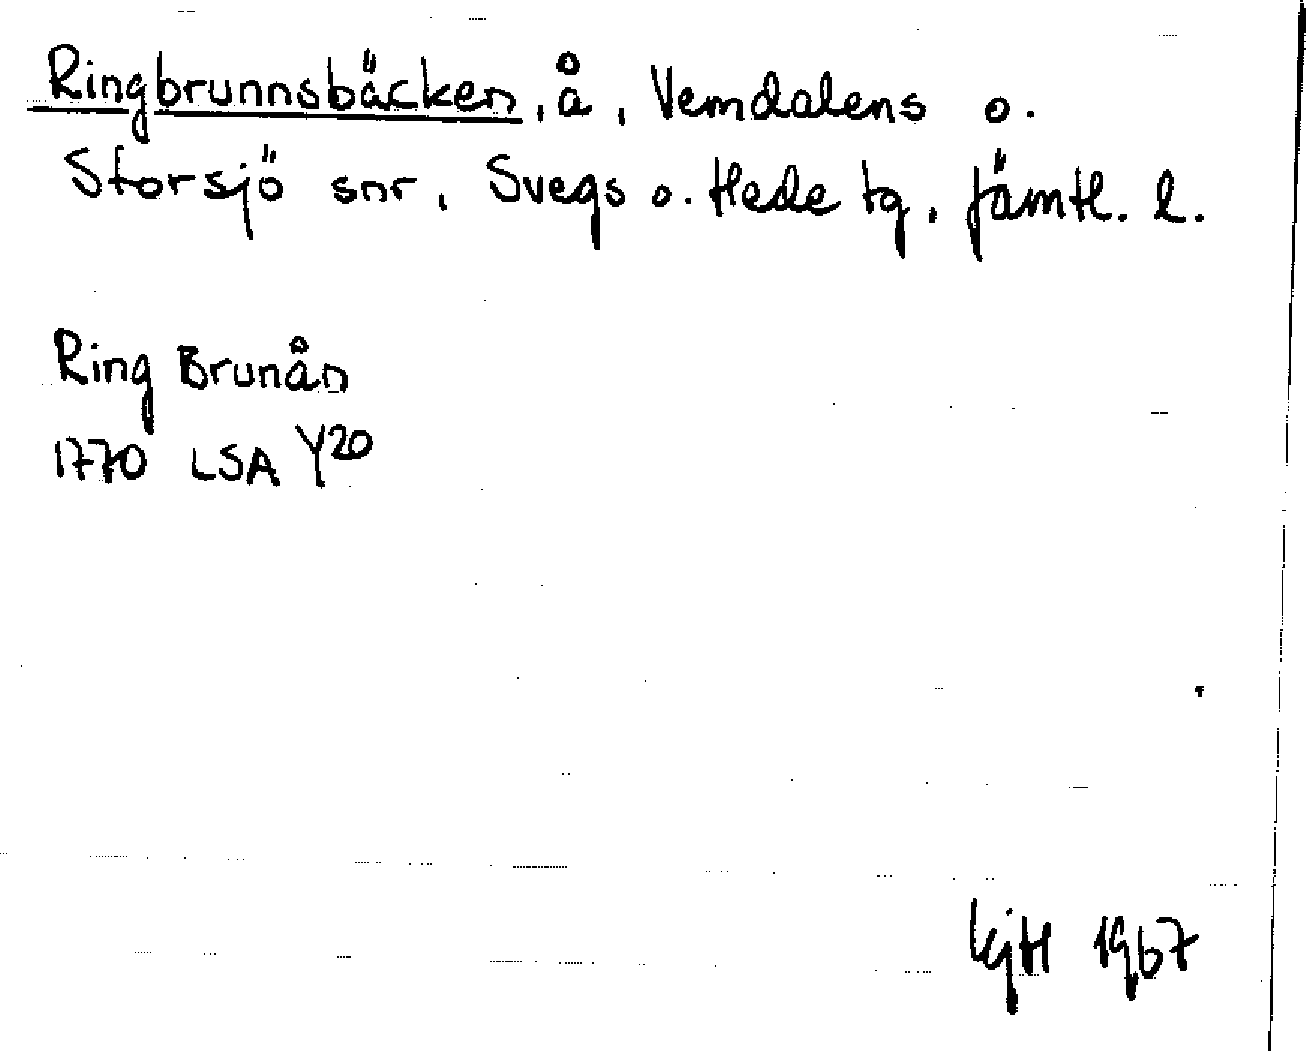 Ringbrunnsbäcken, å, Vemdalens o.
Storsjö snr, Svegs o. Hede tg, Jämtl. l.
Ring Brunån
1770 LSA Y20
KjH 1967